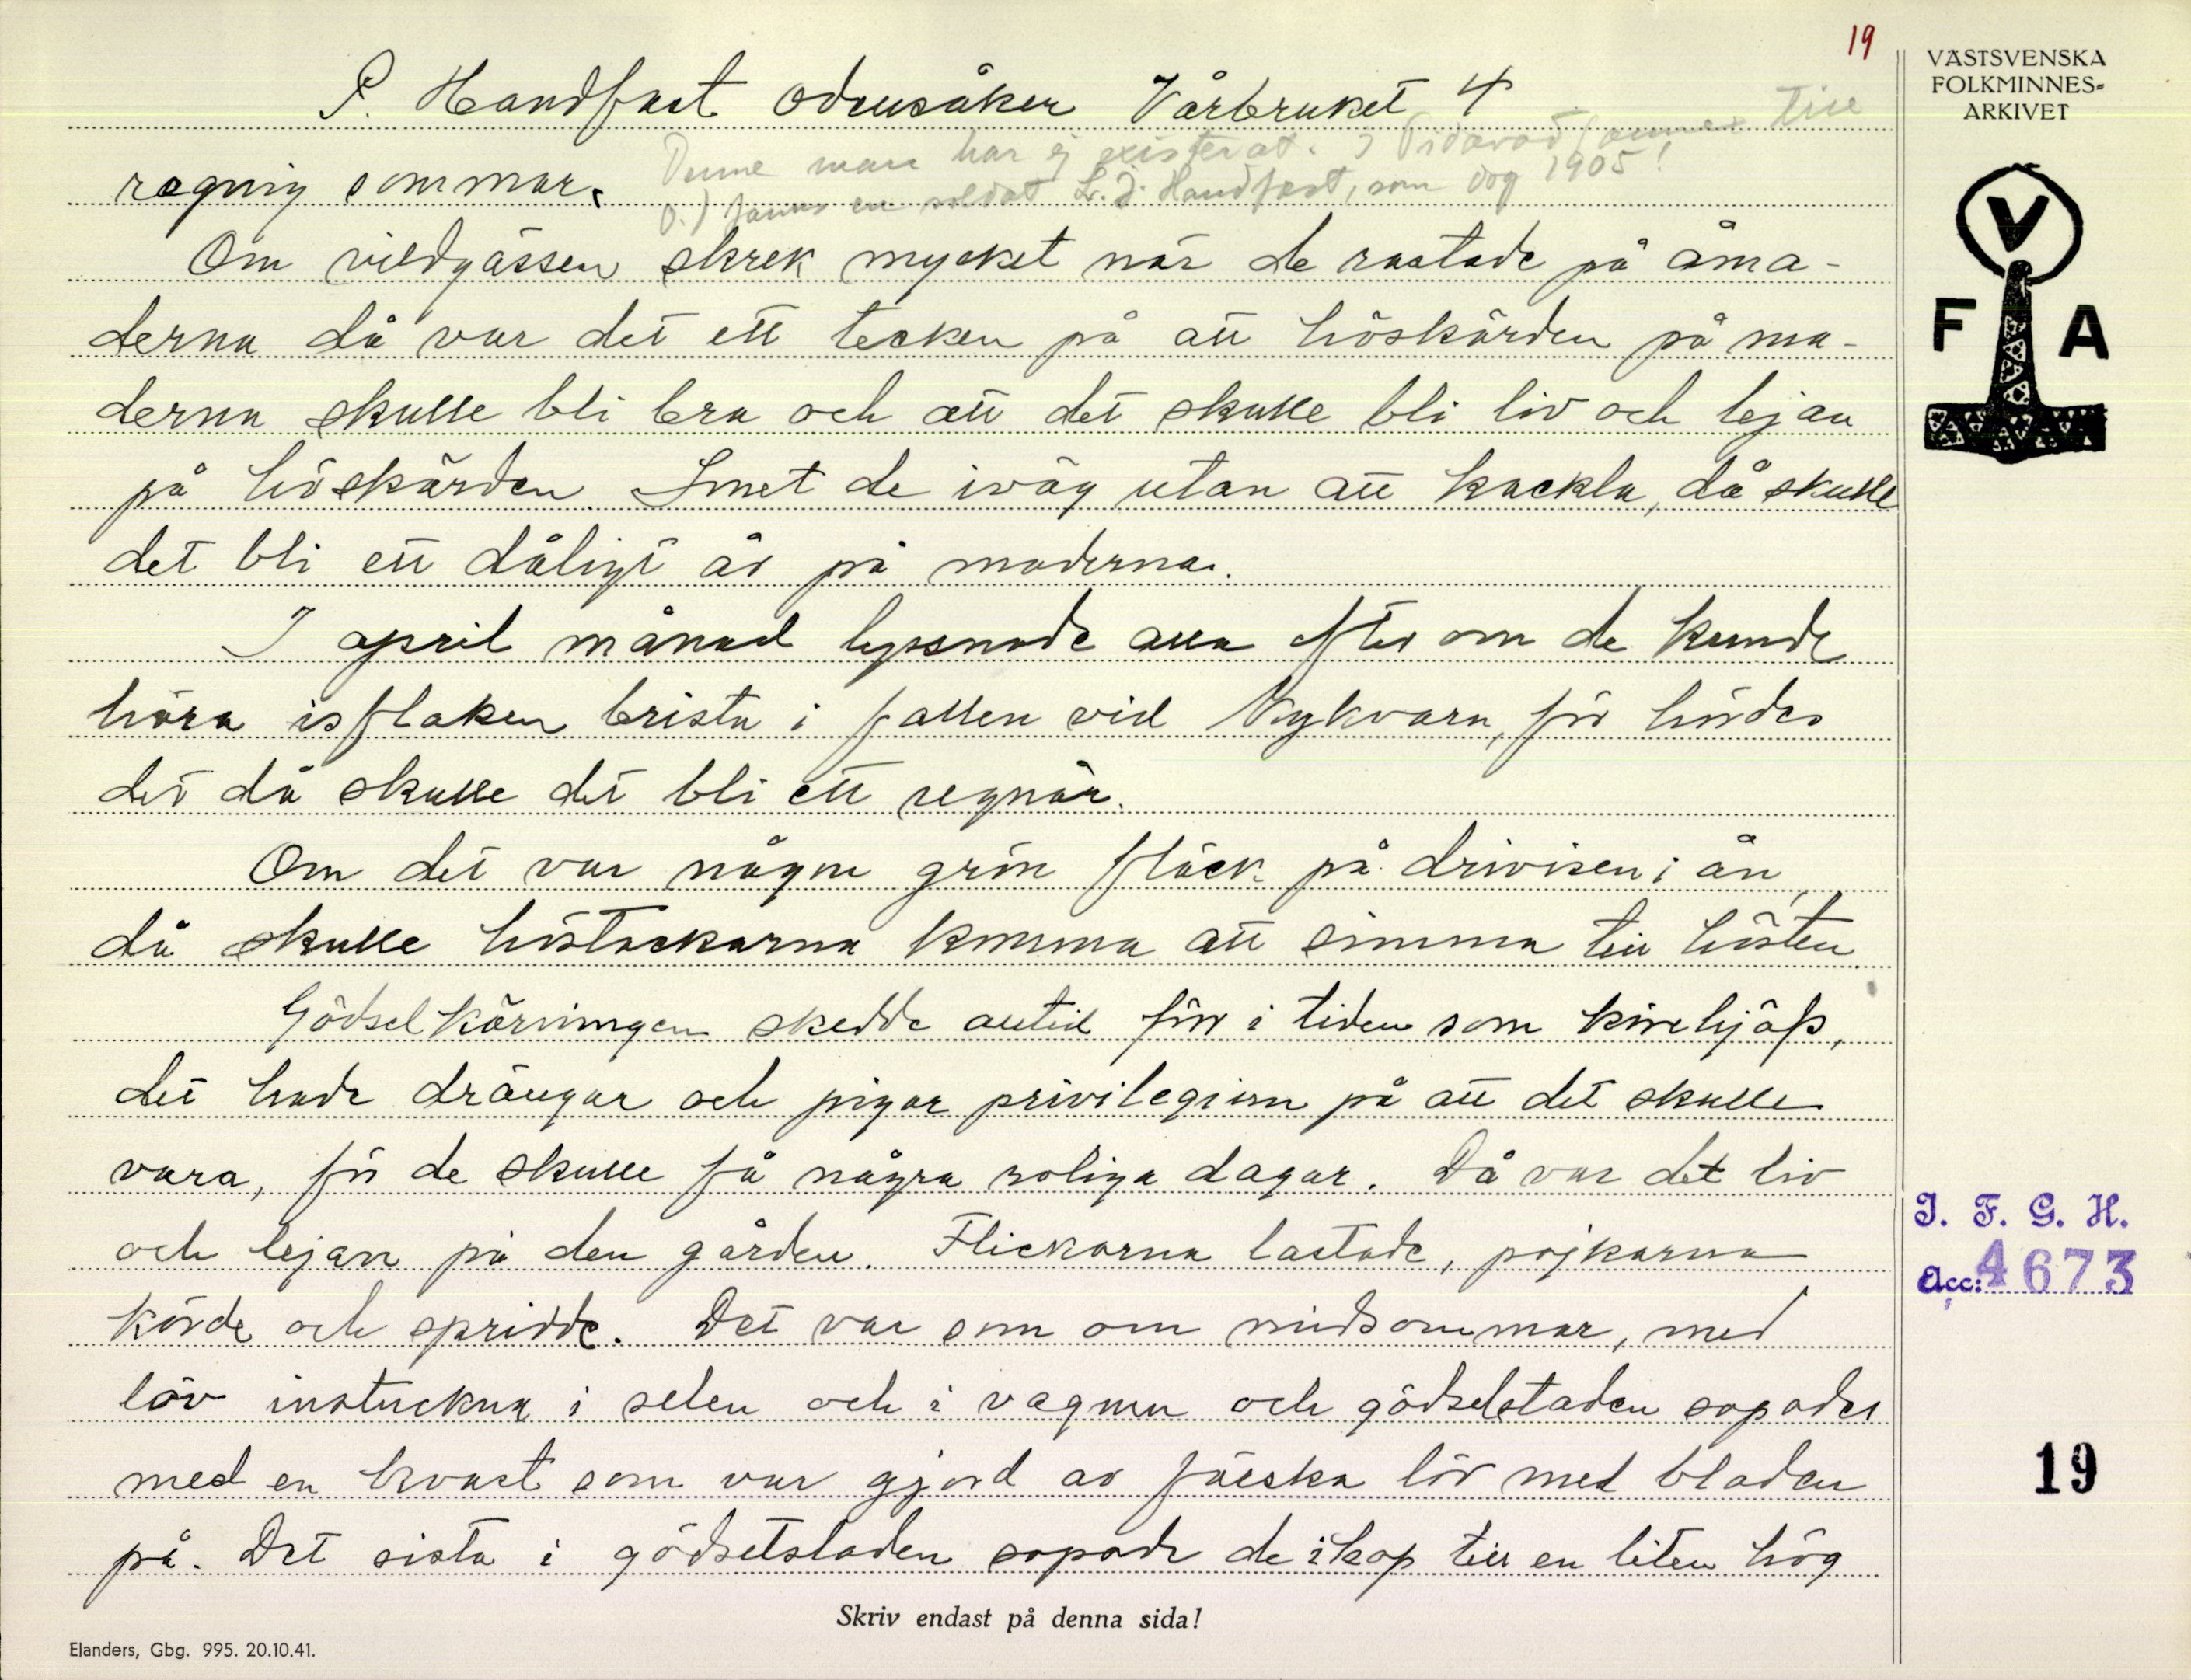 19
VÄSTSVENSKA
FOLKMINNES-
ARKIVET
P. Handfast Odensåker Vårbruket 4
Denne man har ej existerat. I Tidavad (annex till
O.) fanns en soldat L. J. Handfast, som dog 1905!
regnig sommar.
Om vildgässen skrek mycket när de rastade på åma-
derna då var det ett tecken på att höskörden på ma-
derna skulle bli bra och att det skulle bli liv och lejan
på höskörden. Smet de iväg utan att kackla, då skulle
det bli ett dåligt år på maderna.
I april månad lyssnade alla efter om de kunde
höra isflaken brista i fallen vid Nykvarn, för hördes
det då skulle det bli ett regnår.
Om det var någon grön fläck på drivisen i ån,
då skulle höstackarna komma att simma till hösten
Gödselkörningen skedde alltid förr i tiden som körehjälp,
det hade drängar och pigor privilegium på att det skulle
vara, för de skulle få några roliga dagar. Då var det liv
och lejan på den gården. Flickorna lastade, pojkarna
körde och spridde. Det var som om midsommar, med
löv instuckna i selen och i vagnen och gödselstaden sopades
med en kvast som var gjord av färska löv med bladen
på. Det sista i gödselstaden sopade de ihop till en liten hög
V
F A
I. F. G. H.
Acc: 4673
19
Skriv endast på denna sida!
Elanders, Gbg. 995. 20.10.41.